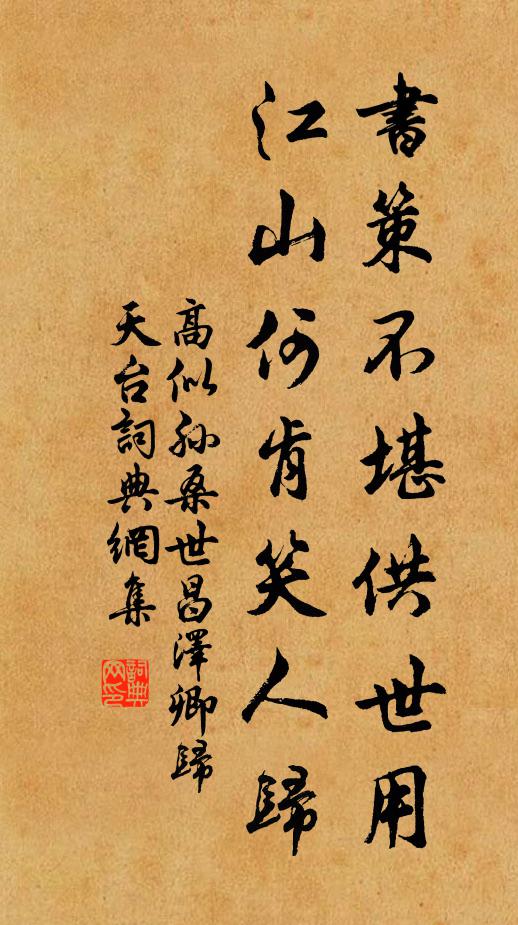 書策不堪供世用
江山何肯笑人歸
高似孫桑世昌澤卿歸
天台詞典網集
詞典網印